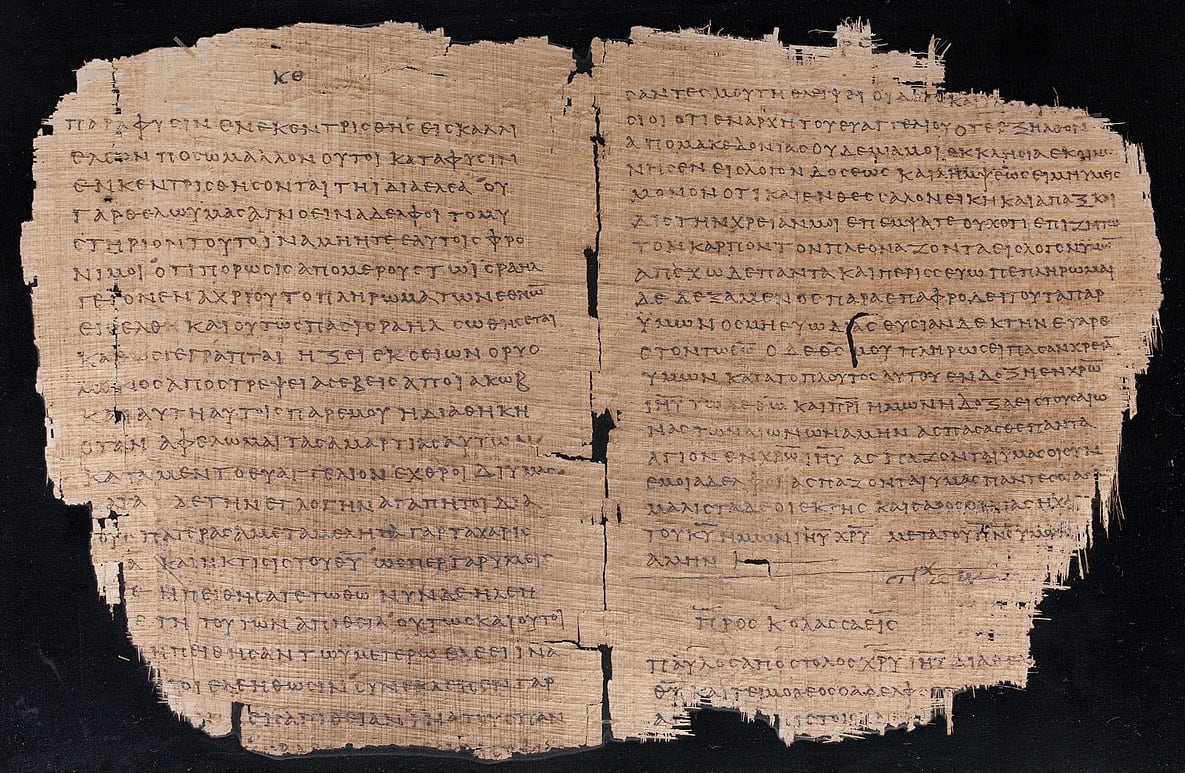 ΚΘ
ΠΑΡΑ ΦΥΣΙΝ ΕΝΕΚΕΝΤΡΙΣΘΗΣ ΕΙΣ ΚΑΛΛΙ
ΕΛΕΟΝ ΠΟΣΩ ΜΑΛΛΟΝ ΟΥΤΟΙ ΚΑΤΑ ΦΥΣΙΝ
ΕΝΚΕΝΤΡΙΣΘΗΣΟΝΤΑΙ ΤΗ ΙΔΙΑ ΕΛΕΑ ΟΥ
ΓΑΡ ΘΕΛΩ ΥΜΑΣ ΑΓΝΟΕΙΝ ΑΔΕΛΦΟΙ ΤΟ ΜΥ
ΣΤΗΡΙΟΝ ΤΟΥΤΟ ΙΝΑ ΜΗ ΗΤΕ ΕΑΥΤΟΙΣ ΦΡΟ
ΝΙΜΟΙ ΟΤΙ ΠΟΡΩΣΙΣ ΑΠΟ ΜΕΡΟΥΣ ΤΩ
ΓΕΓΟΝΕΝ ΑΧΡΙ ΟΥ ΤΟ ΠΛΗΡΩΜΑ ΤΩΝ ΕΘΝΩ̅
ΕΙΣΕΛΘΗ ΚΑΙ ΟΥΤΩΣ ΠΑΣ ΙΣΡΑΗΛ ΣΩΘΗΣΕΤΑΙ
ΚΑΘΩΣ ΓΕΓΡΑΠΤΑΙ ΗΞΕΙ ΕΚ ΣΕΙΩΝ Ο ΡΥΟ
ΑΠΟΣΤΡΕΨΕΙ ΑΣΕΒΕΙΣ ΑΠΟ ΙΑΚΩΒ
ΚΑΙ ΑΥΤΗ ΑΥΤΟΙΣ ΠΑΡ ΕΜΟΥ Η ΔΙΑΘΗΚΗ
ΟΤΑΝ ΑΦΕΛΩΜΑΙ ΤΑΣ ΑΜΑΡΤΙΑΣ ΑΥΤΩΝ
ΚΑΤΑ ΜΕΝ ΤΟ ΕΥΑΓΓΕΛΙΟΝ ΕΧΘΡΟΙ ΔΙ ΥΜΑΣ
ΚΑΤΑ ΔΕ ΤΗΝ ΕΓΛΟΓΗΝ ΑΓΑΠΗΤΟΙ ΔΙΑ
ΤΟΥΣ ΠΑΤΕΡΑΣ ΑΜΕΤΑΜΕΛΗΤΑ ΓΑΡ ΤΑ ΧΑΡΙΣ
ΚΑΙ Η ΚΛΗΣΙΣ ΤΟΥ Θ̅Υ̅ ΩΣΠΕΡ ΓΑΡ ΥΜΕΙΣ
ΗΠΕΙΘΗΣΑΤΕ ΤΩ ΘΩ̅ ΝΥΝ ΔΕ ΗΛΕΗ
ΤΗ ΤΟΥΤΩΝ ΑΠΙΘΕΙΑ ΟΥΤΩΣ ΚΑΙ ΟΥΤΟΙ
ΗΠΕΙΘΗΣΑΝ ΤΩ ΥΜΕΤΕΡΩ ΕΛΕΕΙ ΙΝΑ
ΤΟΙ ΕΛΕΗΘΩΣΙΝ ΣΥΝΕΚΛΕΙΣΕΝ ΓΑΡ
ΙΝΑ ΤΟΥΣ ΠΑΝ
ΣΑΝΤΕΣ ΜΟΥ ΤΗ ΘΛΕΙΨΕΙ ΟΙΔΑΤΕ ΚΑΙ
ΣΙΟΙ ΟΤΙ ΕΝ ΑΡΧΗ ΤΟΥ ΕΥΑΓΓΕΛΙΟΥ ΟΤΕ ΕΞΗΛΘΟΝ
ΑΠΟ ΜΑΚΕΔΟΝΙΑΣ ΟΥΔΕΜΙΑ ΜΟΙ ΕΚΚΛΗΣΙΑ ΕΚΟΙΝΩ
ΝΗΣΕΝ ΕΙΣ ΛΟΓΟΝ ΔΟΣΕΩΣ ΚΑΙ ΛΗΜΨΕΩΣ ΕΙ ΜΗ ΥΜΕΙΣ
ΜΟΝΟΝ ΟΤΙ ΚΑΙ ΕΝ ΘΕΣΣΑΛΟΝΕΙΚΗ ΚΑΙ ΑΠΑΞ ΚΑΙ
ΔΙΣ ΤΗΝ ΧΡΕΙΑΝ ΜΟΙ ΕΠΕΜΨΑΤΕ ΟΥΧ ΟΤΙ ΕΠΙΖΗΤΩ
ΤΟΝ ΚΑΡΠΟΝ ΤΟΝ ΠΛΕΟΝΑΖΟΝΤΑ ΕΙΣ ΛΟΓΟΝ ΥΜΩ̅
ΑΠΕΧΩ ΔΕ ΠΑΝΤΑ ΚΑΙ ΠΕΡΙΣΣΕΥΩ ΠΕΠΛΗΡΩΜΑΙ
ΔΕ ΔΕΞΑΜΕΝΟΣ ΠΑΡΑ ΕΠΑΦΡΟΔΕΙΤΟΥ ΤΑ ΠΑΡ
ΥΜΩΝ ΟΣΜΗ ΕΥΩΔΙΑΣ ΘΥΣΙΑΝ ΔΕΚΤΗΝ ΕΥΑΡΕ
ΣΤΟΝ ΤΩ ΘΩ̅ Ο ΔΕ ΘΣ̅ ΜΟΥ ΠΛΗΡΩΣΕΙ ΠΑΣΑΝ ΧΡΕΙΑ
ΥΜΩΝ ΚΑΤΑ ΤΟ ΠΛΟΥΤΟΣ ΑΥΤΟΥ ΕΝ ΔΟΞΗ ΕΝ ΧΡΩ̅
ΙΗΥ̅ ΤΩ ΔΕ ΘΩ̅ ΚΑΙ ΠΡΙ̅ ΗΜΩΝ Η ΔΟΞΑ ΕΙΣ ΤΟΥΣ ΑΙΩ
ΝΑΣ ΤΩΝ ΑΙΩΝΩΝ ΑΜΗΝ ΑΣΠΑΣΑΣΘΕ ΠΑΝΤΑ
ΑΓΙΟΝ ΕΝ ΧΡΩ̅ ΙΗΥ̅ ΑΣΠΑΖΟΝΤΑΙ ΥΜΑΣ ΟΙ ΣΥΝ
ΕΜΟΙ ΑΔΕΛΦΟΙ ΑΣΠΑΖΟΝΤΑΙ ΥΜΑΣ ΠΑΝΤΕΣ
ΜΑΛΙΣΤΑ ΔΕ ΟΙ ΕΚ ΤΗΣ ΚΑΙΣΑΡΟΣ ΟΙΚΙΑΣ Η Χ
ΤΟΥ ΚΥ̅ ΗΜΩΝ ΙΗΥ̅ ΧΡΥ̅ ΜΕΤΑ ΤΟΥ ΠΝΣ̅ ΥΜΩΝ
ΑΜΗΝ
ΠΡΟΣ ΚΟΛΑΣΣΑΕΙΣ
ΠΑΥΛΟΣ ΑΠΟΣΤΟΛΟΣ ΧΡΥ̅ ΙΗΥ̅ ΔΙΑ ΘΕ
ΘΥ̅ ΚΑΙ ΤΕΙΜΟΘΕΟΣ Ο ΑΔΕΛΦ